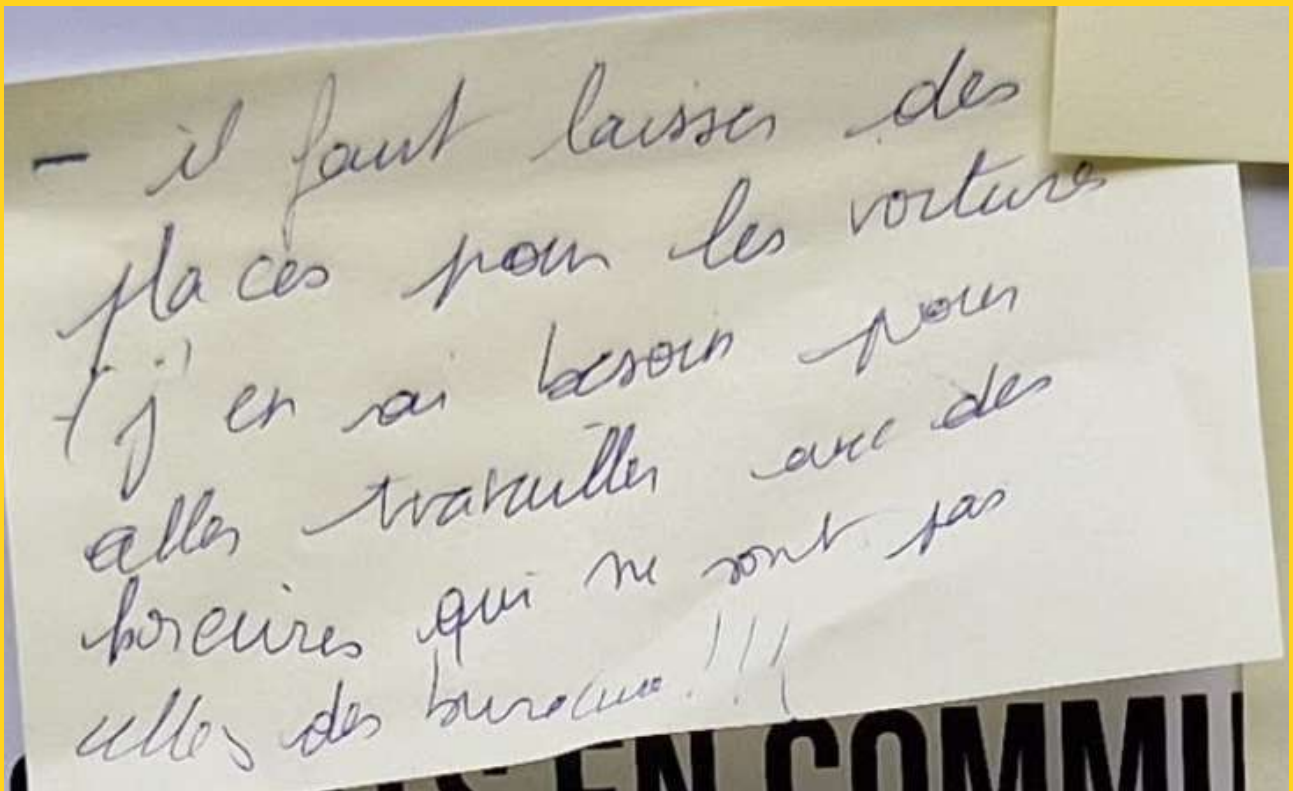 - il faut laisser des
places pour les voitures
(j'en ai besoin pour
aller travailler avec des
horaires qui ne sont pas
celles des bureaux !!!
S EN COMMU